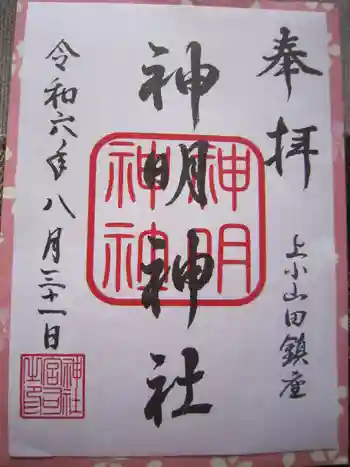 奉拝
上小山田鎮座
神明神社
神明神社
令和六年八月三十一日
神社宮司之印